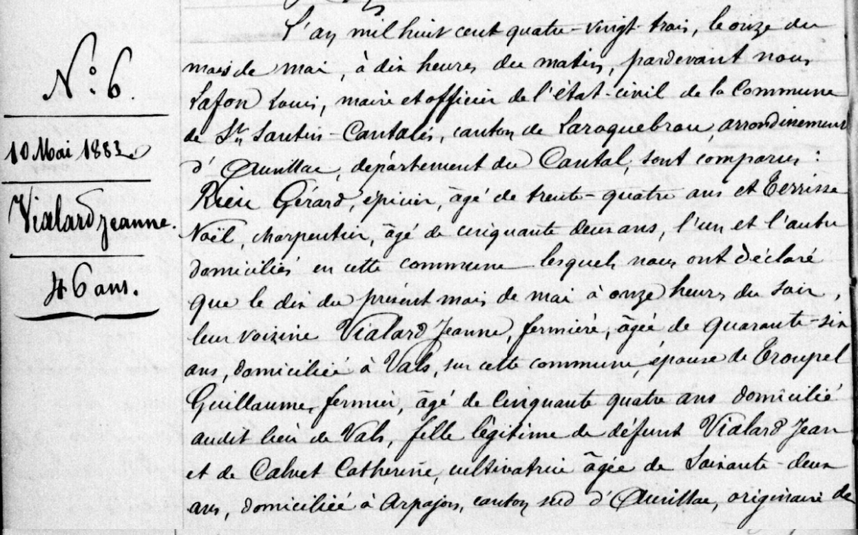 N° 6
10 Mai 1883
Vialard Jeanne.
46 ans.
L'an mil huit cent quatre-vingt trois, le onze du
mois de mai, à dix heures du matin, pardevant nous
Lafon Louis, maire et officier de l'état-civil de la Commune
de St Santin-Cantalès, canton de Laroquebrou, arrondissement
d'Aurillac, département du Cantal, sont comparus :
Rieu Gérard, épicier, âgé de trente-quatre ans et Terrisse
Noël, charpentier, âgé de cinquante deux ans, l'un et l'autre
domiciliés en cette commune lesquels nous ont déclaré
que le dix du présent mois de mai à onze heures du soir,
leur voizine Vialard Jeanne, fermière, âgée de quarante-six
ans, domiciliée à Vals, sur cette commune, épouse de Troupel
Guillaume, fermier, âgé de Cinquante quatre ans domicilié
audit lieu de Vals, fille légitime de défunt Vialard Jean
et de Calvet Catherine, cultivatrice âgée de Soixante-deux
ans, domiciliée à Arpajon, canton sud d'Aurillac, originaire de